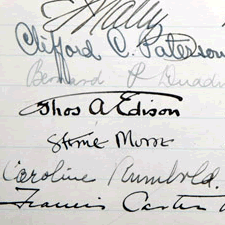 E Mally
Clifford C. Paterson
Bernard P Quadr
Thos A Edison
Stene Mune
Caroline Rumbold.
Francis Carter